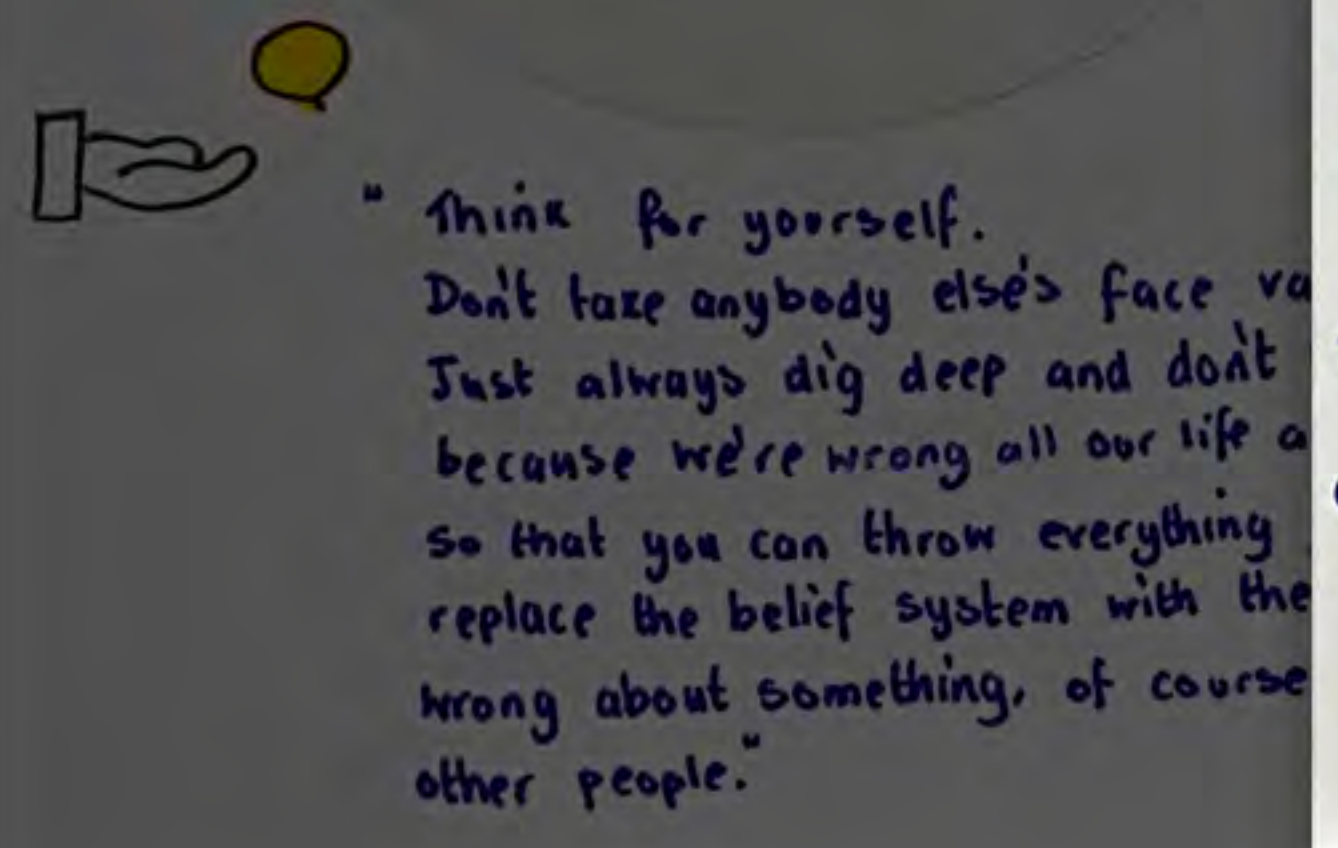 " Think for yourself.
Don't take anybody else's face va
Just always dig deep and don't
because we're wrong all our life a
so that you can throw everything
replace the belief system with the
wrong about something, of course
other people."